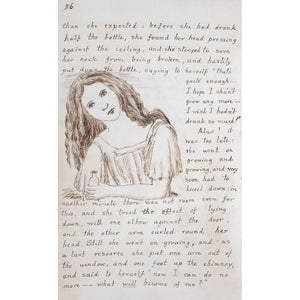 36
than she expected: before she had drunk
half the bottle, she found her head pressing
against the ceiling, and she stooped to save
her neck from being broken, and hastily
put down the bottle, saying to herself "that's
quite enough—
I hope I shan't
grow any more—
I wish I hadn't
drunk so much!"
Alas! it
was too late:
she went on
growing and
growing, and very
soon had to
kneel down: in
another minute there was not room even for
this, and she tried the effect of lying
down, with one elbow against the door,
and the other arm curled round her
head. Still she went on growing, and as
a last resource she put one arm out of
the window, and one foot up the chimney,
and said to herself "now I can do no
more—what will become of me?"